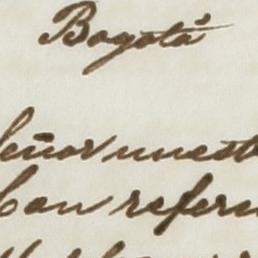 Bogotá
Señor nuest
Con refern